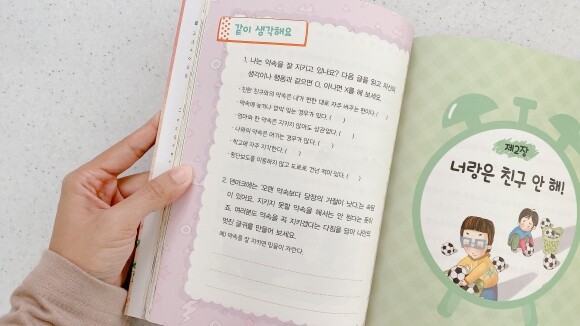 같이 생각해요
1. 나는 약속을 잘 지키고 있나요? 다음 글을 읽고 자신의
생각이나 행동과 같으면 O, 아니면 X를 해 보세요.
· 친한 친구와의 약속은 내가 편한 대로 자주 바꾸는 편이다. ( )
· 약속에 늦거나 깜빡 잊는 경우가 있다. ( )
· 엄마와 한 약속은 지키지 않아도 상관없다. ( )
· 나와의 약속은 어기는 경우가 많다. ( )
· 학교에 자주 지각한다. ( )
· 횡단보도를 이용하지 않고 도로로 건넌 적이 있다. ( )
2. 덴마크에는 '오랜 약속보다 당장의 거절이 낫다.'는 속담
이 있어요. 지키지 못할 약속을 해서는 안 된다는 뜻이
죠. 여러분도 약속을 꼭 지키겠다는 다짐을 담아 나만의
멋진 글귀를 만들어 보세요.
예) 약속을 잘 지키면 믿음이 자란다.
제2장
너랑은 친구 안 해!